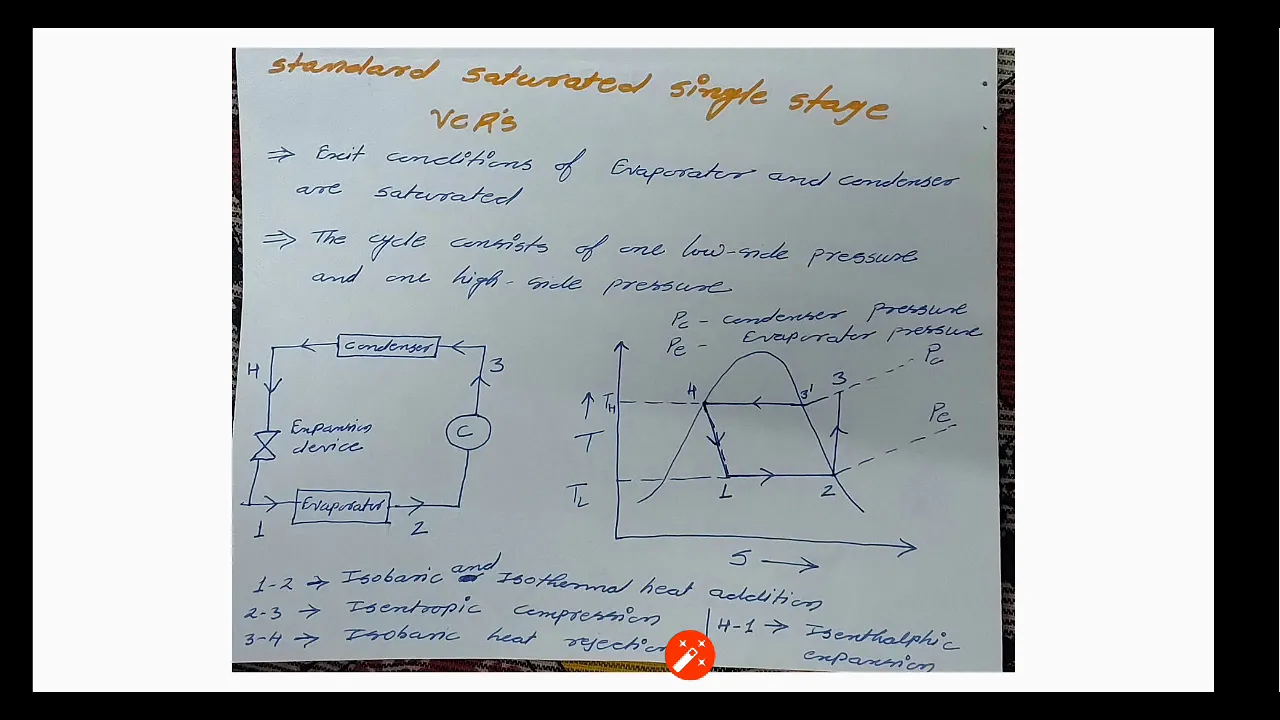 standard saturated single stage
VCR's
⇒ Exit conditions of Evaporator and condenser
are saturated
⇒ The cycle consists of one low-side pressure
and one high-side pressure
Pc - condenser pressure
PE - Evaporator pressure
Condenser
4
3
Expansion
device
C
Evaporator
1
2
Pc
3
4
3'
TH
PE
T
TL
1
2
S
1-2 → Isobaric and Isothermal heat addition
2-3 → Isentropic compression
3-4 → Isobaric heat rejection
4-1 → Isenthalphic
expansion